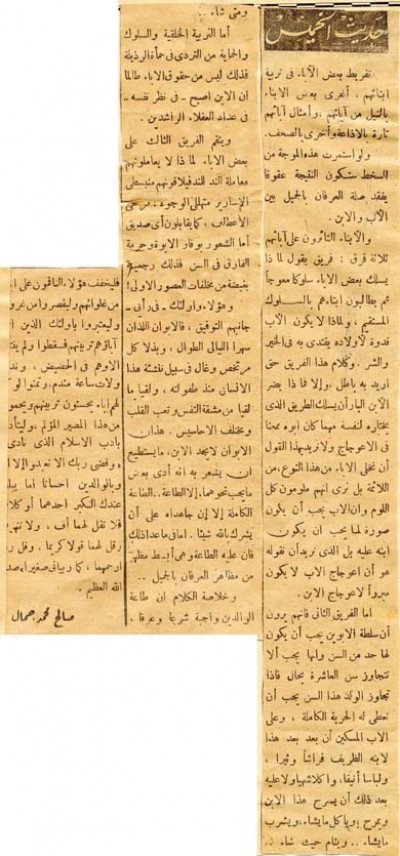 حديث الخميس
تفريط بعض الآباء فى تربية
ابنائهم ، أغرى بعض الابناء
بالنيل من آبائهم ، وأمثال آبائهم
تارة بالاذاعة وأخرى بالصحف.
ولو استمرت هذه الموجة من
السخط ستكون النتيجة عقوقا
يفقد صلة العرفان بالجميل بين
الأب والابن .
والأبناء الثائرون على آبائهم
ثلاثة فرق : فريق يقول لما ذا
يسلك بعض الآباء سلوكا معوجاً
ثم يطالبون ابناءهم بالسلوك
المستقيم ، ولماذا لا يكون الأب
قدوة لأولاده يقتدى به فى الخير
والشر . وكلام هذا الفريق حق
اريد به باطل ، وإلا فما ذا يضر
الابن البار أن يسلك الطريق الذى
يختاره لنفسه مهما كان ابوه ممعنا
فى الاعوجاج ولا نريد بهذا القول
أن نخلى الآباء من هذا النوع ، من
اللائمة بل نرى انهم ملومون كل
اللوم وان الأب يجب أن يكون
صورة لما يجب ان يكون
ابنه عليه بل الذى نريد أن نقوله
هو أن اعوجاج الاب لا يكون
مبرراً لاعوجاج الابن .
اما الفريق الثانى فانهم يرون
أن سلطة الابوين يجب أن يكون
لها حد من السن وانها يجب ألا
تتجاوز سن العاشرة بحال فاذا
تجاوز الولد هذا السن يجب أن
تعطى له الحرية الكاملة ، وعلى
الاب المسكين أن يعد بعد هذا
لابنه الظريف فراشاً وثيرا ،
ولباسا أنيقا ، واكلا شهيا ولا عليه
بعد ذلك أن يسرح هذا الابن
ويمرح ؛ ويأكل ما يشاء ، ويشرب
ما يشاء .. وينام حيث شاء :
ومتى شاء ..
أما التربية الخلقية والسلوك
والحماية من التردى فى حمأة الرذيلة
فذلك ليس من حقوق الاباء طالما
ان الابن اصبح - فى نظر نفسه -
فى عداد العقلاء الراشدين .
وينقم الفريق الثالث على
بعض الآباء لما ذا لا يعاملونهم
معاملة الند للند فيلاقونهم منبسطى
الاسارير متهللى الوجوه ،
الاعطاف ، كما يقابلون أى صديق
أما الشعور بوقار الابوة وحرمة
الفارق فى السن فذلك رجعية
بغيضة من مخلفات العصور الاولى !
وهؤلاء وأولئك - فى رأيى -
جانبهم التوفيق ، فالابوان اللذان
سهرا الليالى الطوال ، وبذلا كل
مرتخص وغال فى سبيل تنشئة هذا
الانسان منذ طفولته ، ولقيا ما
لقيا من مشقة النفس وتعب القلب
ومختلف الاحاسيس . هذان
الابوان لا يجد الابن ، ما يستطيع
ان يشعر به انه أدى بعض
ما يجب نحوهما ، إلا الطاعة . الطاعة
الكاملة إلا إن جاهداه على أن
يشرك بالله شيئا . اما فى ما عدا ذلك
فان عليه الطاعة وهى أبسط مظهر
من مظاهر العرفان بالجميل ..
وخلاصة الكلام ان طاعة
الوالدين واجبة شرعا وعرفا .
فليخفف هؤلاء الناقمون على
من غلوائهم وليقصروا من
وليعتبروا بأولئك الذين
آباؤهم تربيتهم فسقطوا ولم
إلا وهم فى الحضيض ،
ولات ساعة مندم ، وتمنوا لو
لهم اباء يحسنون تربيتهم
من هذا المصير المؤلم ،
بأدب الاسلام الذى نادى
، وقضى ربك الا تعبدوا إلا
وبالوالدين احسانا اما
عندك الكبر احدهما أو
فلا تقل لهما أف ، ولا
وقل لهما قولا كريما . وقل
ارحمهما ، كما ربيانى صغيرا ،
الله العظيم .
صالح محمد جمال